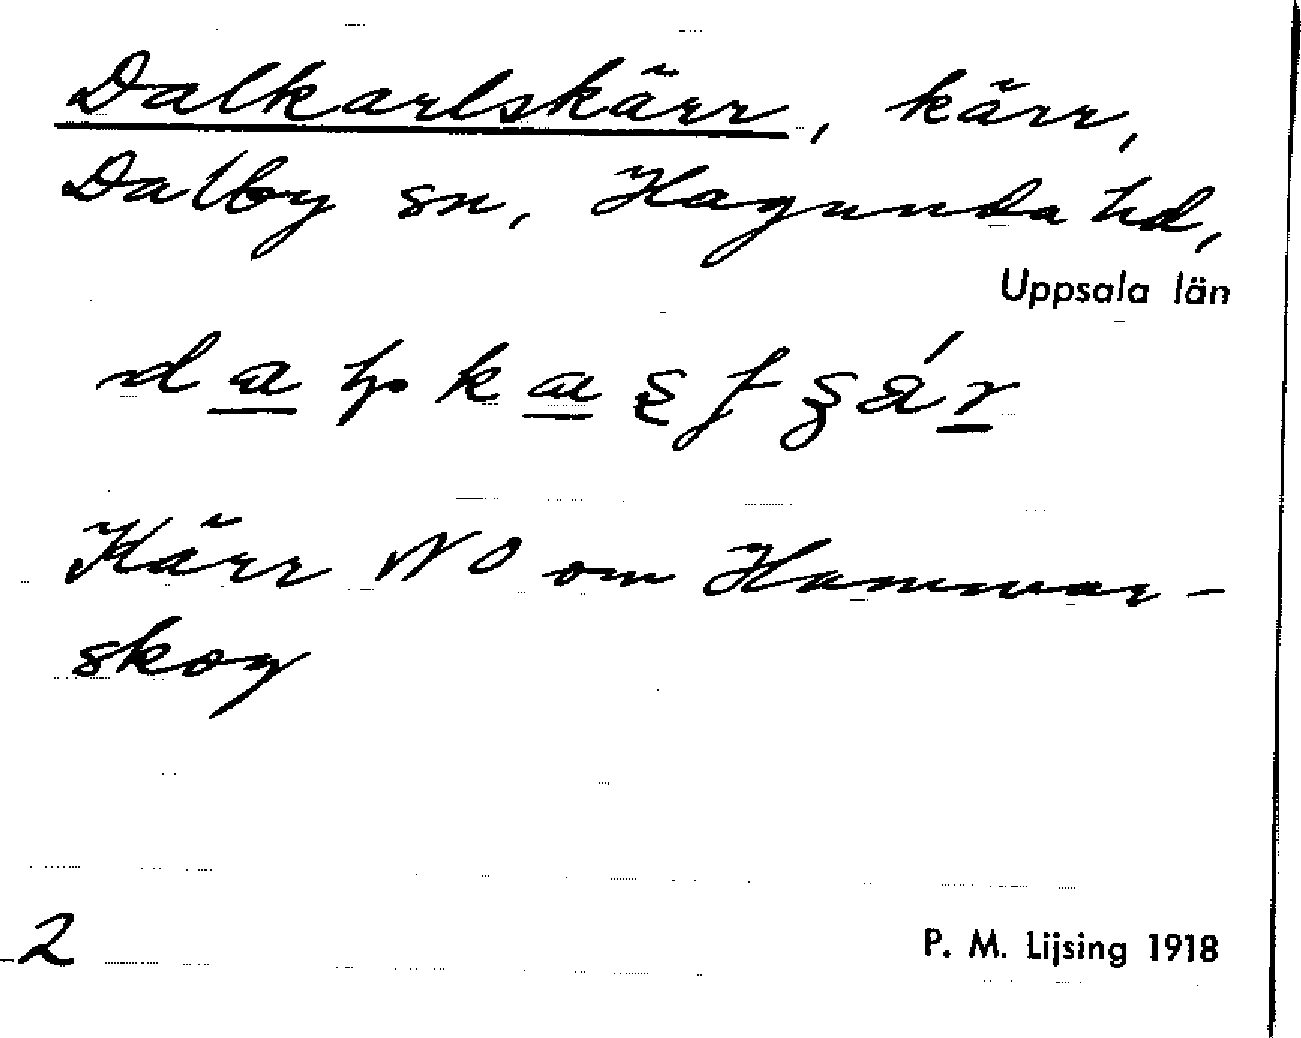 Dalkarlskärr, kärr,
Dalby sn, Hagunda hd,
Uppsala län
Kärr NO om Hammar-
skog
2
P. M. Lijsing 1918